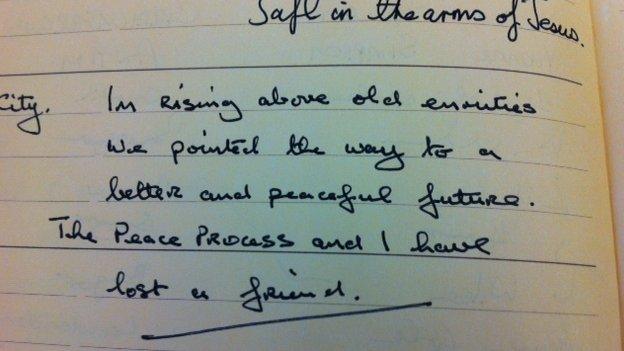 Safe in the arms of Jesus.
City. In rising above old enmities
we pointed the way to a
better and peaceful future.
The Peace Process and I have
lost a friend.